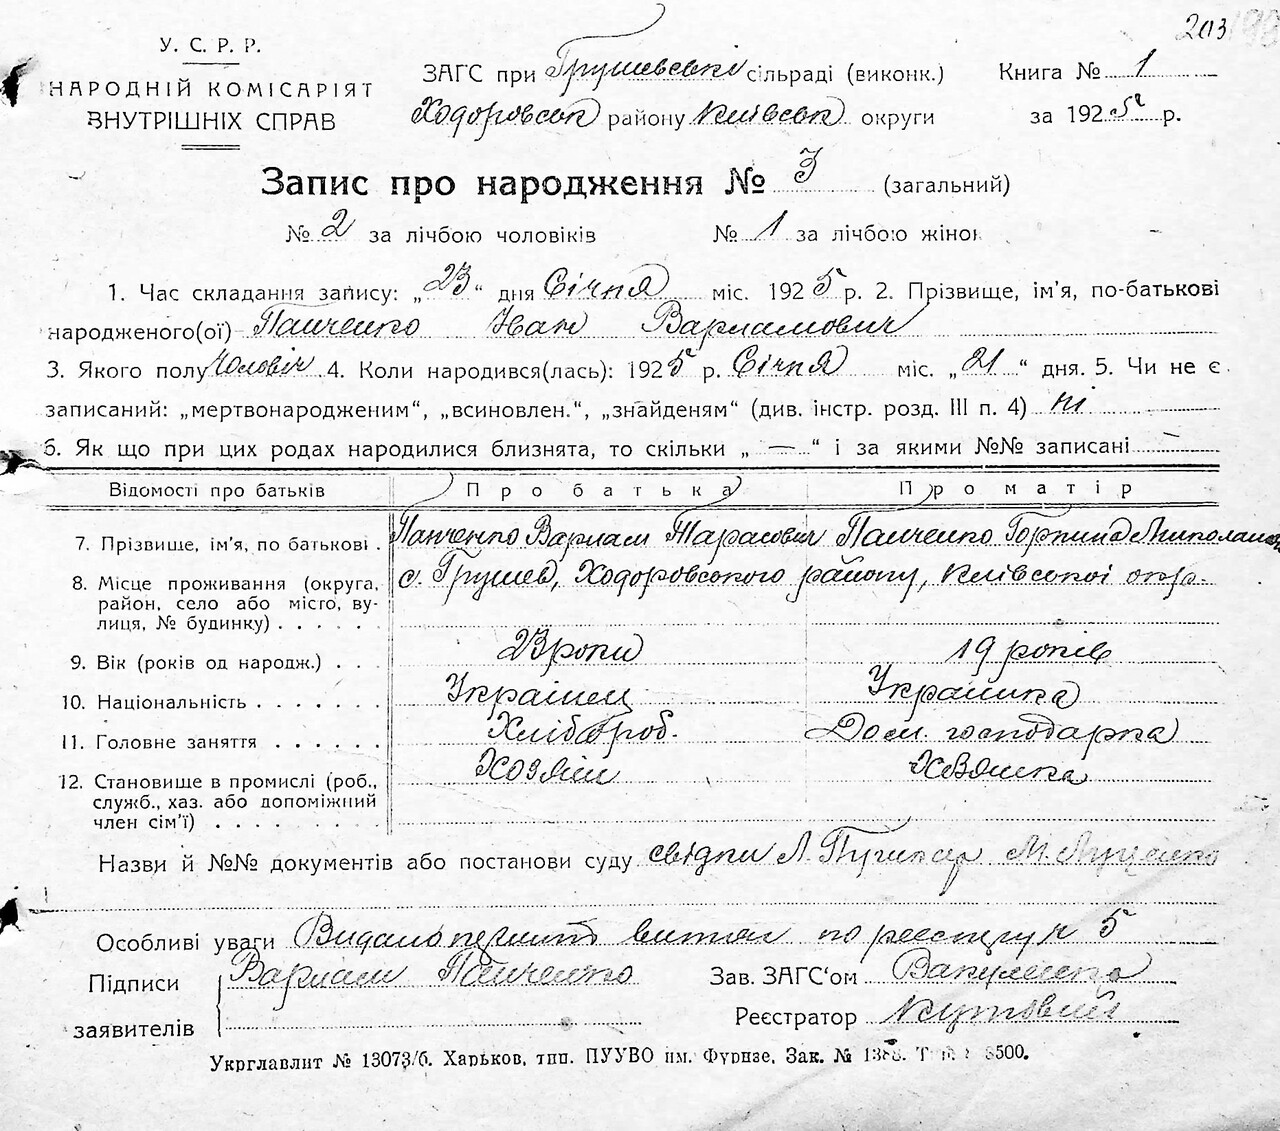 203
У. С. Р. Р.
НАРОДНІЙ КОМІСАРІЯТ
ВНУТРІШНІХ СПРАВ
ЗАГС при Грушевські сільраді (виконк.)
Ходоровськ району Київськ округи
Книга № 1
за 1925 р.
Запис про народження № 3 (загальний)
№ 2 за лічбою чоловіків № 1 за лічбою жінок
1. Час складання запису: „23“ дня Січня міс. 1925 р. 2. Прізвище, ім'я, по-батькові
народженого(ої) Панченко Іван Варламович
3. Якого полу Чоловіч 4. Коли народився(лась): 1925 р. Січня міс. „21“ дня. 5. Чи не є
записаний: „мертвонародженим“, „всиновлен.“, „знайденям“ (див. інстр. розд. III п. 4) ні
6. Як що при цих родах народилися близнята, то скільки „—“ і за якими №№ записані —
Відомості про батьків Про батька Про матір
7. Прізвище, ім'я, по батькові . Панченко Варлам Тарасович Панченко Горпина Миколаєв
8. Місце проживання (округа, район, село або місто, вулиця, № будинку) . . . . . с. Грушев, Ходоровського району, Київської окр.
9. Вік (років од народж.) . . . 23 роки 19 років
10. Національність . . . . . . . Українец Українка
11. Головне заняття . . . . . . Хлібороб. Дом. господарка
12. Становище в промислі (роб., служб., хаз. або допоміжний член сім'ї) . . . . . . . . . Хозяін Хозяйка
Назви й №№ документів або постанови суду свідки Л. М.
Особливі уваги Видано витяг по реєстру № 5
Підписи заявителів Варлам Панченко
Зав. ЗАГС'ом Вакуленко
Реєстратор Кутовий
Укрглавлит № 13073/б. Харьков, тип. ПУУВО им. Фрунзе, Зак. № 500.